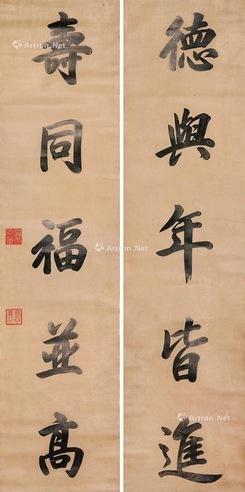 德與年皆進
壽同福並高
Artron.Net
Artron.Net
Artron.Net
Artron.Net